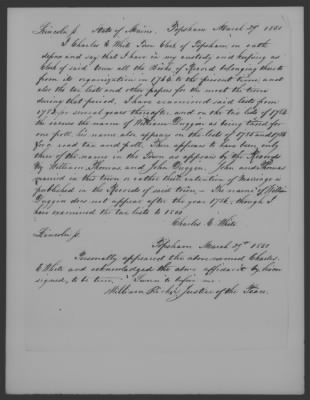 Lincoln ss. State of Maine, Topsham March 29 1851
I Charles E White Town Clerk of Topsham, on oath
depose and say that I have in my custody and keeping as
Clerk of said town all the Books of Record belonging thereto
from its organization in 1764 to the present time, and
also the tax lists and other papers for the most the time
during that period. I have examined said lists from
1783, for several years thereafter and on the tax lists of 1784
the name of William Duggen as being taxed for
one poll, his name also appears in the lists of 1785 and 1786
for a road tax and poll. There appears to have been only
three of the name in the Town as appears by the Records
By William, Thomas, and John Duggen. John and Thomas
married in this town or rather their intention of marriage is
published in the Records of said town — The name of William
Duggen does not appear after the year 1786, though I
have examined the tax lists to 1800
Charles E White
Lincoln ss.
Topsham March 29th 1851
Personally appeared the above named Charles
E White and acknowledged the above affidavit by him
signed, to be true. Sworn to before me
William Justice of the Peace.